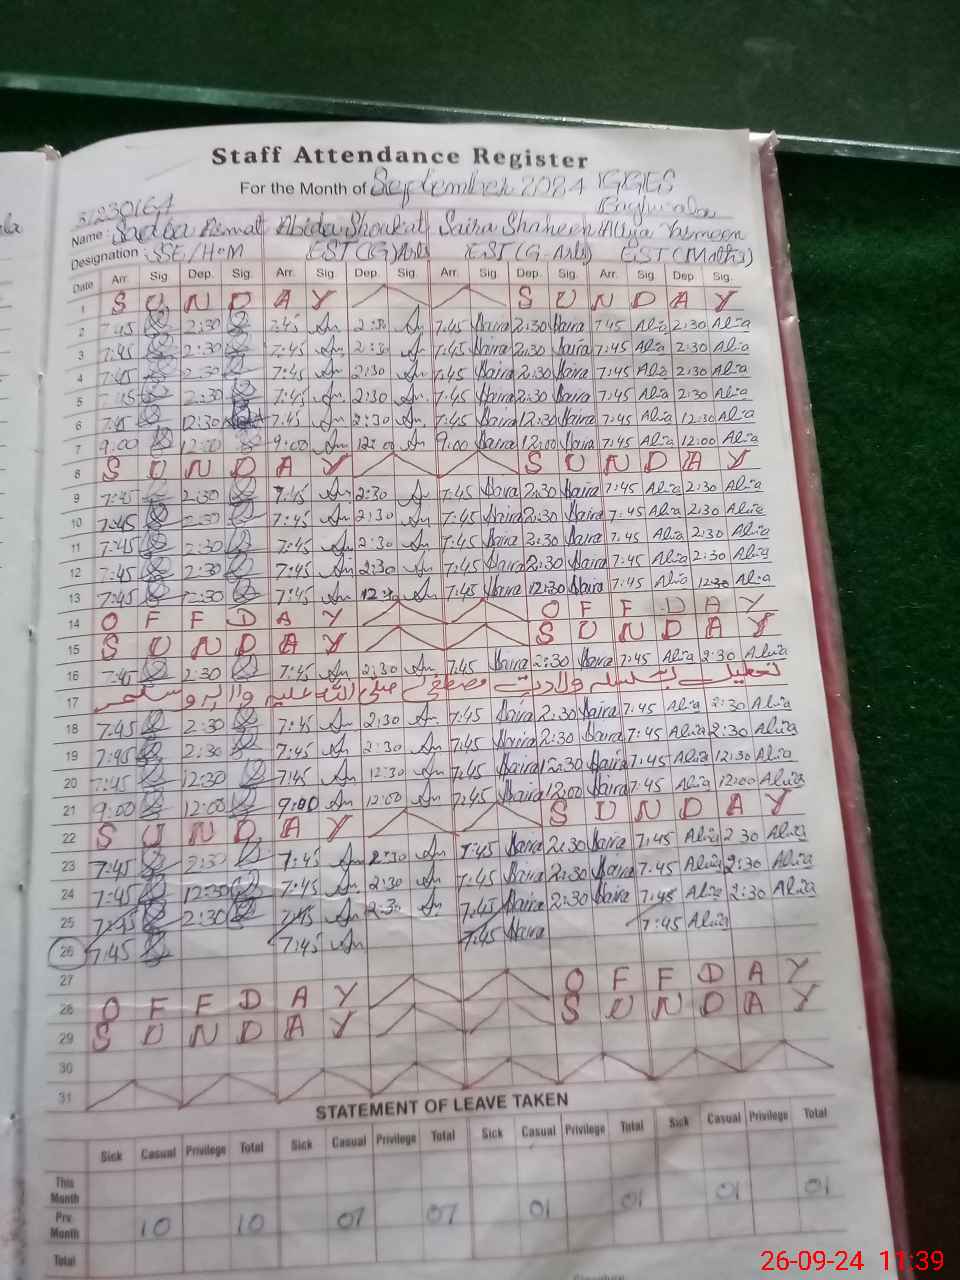 Staff Attendance Register
For the Month of September 2024 GGES
31230164
Name : Sadaf Abida Shoukat Saira Shaheen Aliya Yasmeen
Designation SSE/H.M EST (G) Arts EST (G. Arts) EST (Maths)
Date Arr. Sig Dep. Sig. Arr. Sig. Dep. Sig. Arr. Sig. Dep. Sig. Arr. Sig. Dep. Sig.
1 S U N D A Y S U N D A Y
2 7:45 2:30 7:45 An 2:30 An 7:45 Saira 2:30 Saira 7:45 Alia 2:30 Alia
3 7:45 2:30 7:45 An 2:30 An 7:45 Saira 2:30 Saira 7:45 Alia 2:30 Alia
4 7:45 2:30 7:45 An 2:30 An 7:45 Saira 2:30 Saira 7:45 Alia 2:30 Alia
5 7:45 2:30 7:45 An 2:30 An 7:45 Saira 2:30 Saira 7:45 Alia 2:30 Alia
6 7:45 12:30 7:45 An 2:30 An 7:45 Saira 12:30 Saira 7:45 Alia 12:30 Alia
7 9:00 12:00 9:00 An 12:00 An 9:00 Saira 12:00 Saira 7:45 Alia 12:00 Alia
8 S U N D A Y S U N D A Y
9 7:45 2:30 7:45 An 2:30 An 7:45 Saira 2:30 Saira 7:45 Alia 2:30 Alia
10 7:45 2:30 7:45 An 2:30 An 7:45 Saira 2:30 Saira 7:45 Alia 2:30 Alia
11 7:45 2:30 7:45 An 2:30 An 7:45 Saira 2:30 Saira 7:45 Alia 2:30 Alia
12 7:45 2:30 7:45 An 2:30 An 7:45 Saira 2:30 Saira 7:45 Alia 2:30 Alia
13 7:45 12:30 7:45 An An 7:45 Saira 12:30 Saira 7:45 Alia 12:30 Alia
14 O F F D A Y O F F D A Y
15 S U N D A Y S U N D A Y
16 7:45 2:30 7:45 An 2:30 An 7:45 Saira 2:30 Saira 7:45 Alia 2:30 Alia
17 تعطیل بسلسلہ ولادت مصطفی صلی اللہ علیہ وآلہ وسلم
18 7:45 2:30 7:45 An 2:30 An 7:45 Saira 2:30 Saira 7:45 Alia 2:30 Alia
19 7:45 2:30 7:45 An 2:30 An 7:45 Saira 2:30 Saira 7:45 Alia 2:30 Alia
20 7:45 12:30 7:45 An 12:30 An 7:45 Saira 12:30 Saira 7:45 Alia 12:30 Alia
21 9:00 12:00 9:00 An 12:00 An 7:45 Saira 12:00 Saira 7:45 Alia 12:00 Alia
22 S U N D A Y S U N D A Y
23 7:45 2:30 7:45 An 2:30 An 7:45 Saira 2:30 Saira 7:45 Alia 2 30 Alia
24 7:45 12:30 7:45 An 2:30 An 7:45 Saira 2:30 Saira 7:45 Alia 2:30 Alia
25 7:45 2:30 7:45 An 2:30 An 7:45 Saira 2:30 Saira 7:45 Alia 2:30 Alia
26 7:45 7:45 An 7:45 Saira 7:45 Alia
27
28 O F F D A Y O F F D A Y
29 S U N D A Y S U N D A Y
30
31
STATEMENT OF LEAVE TAKEN
Sick Casual Privilege Total Sick Casual Privilege Total Sick Casual Privilege Total Sick Casual Privilege Total
This Month
Prv. Month 10 10 07 07 01 01 01 01
Total
26-09-24 11:39